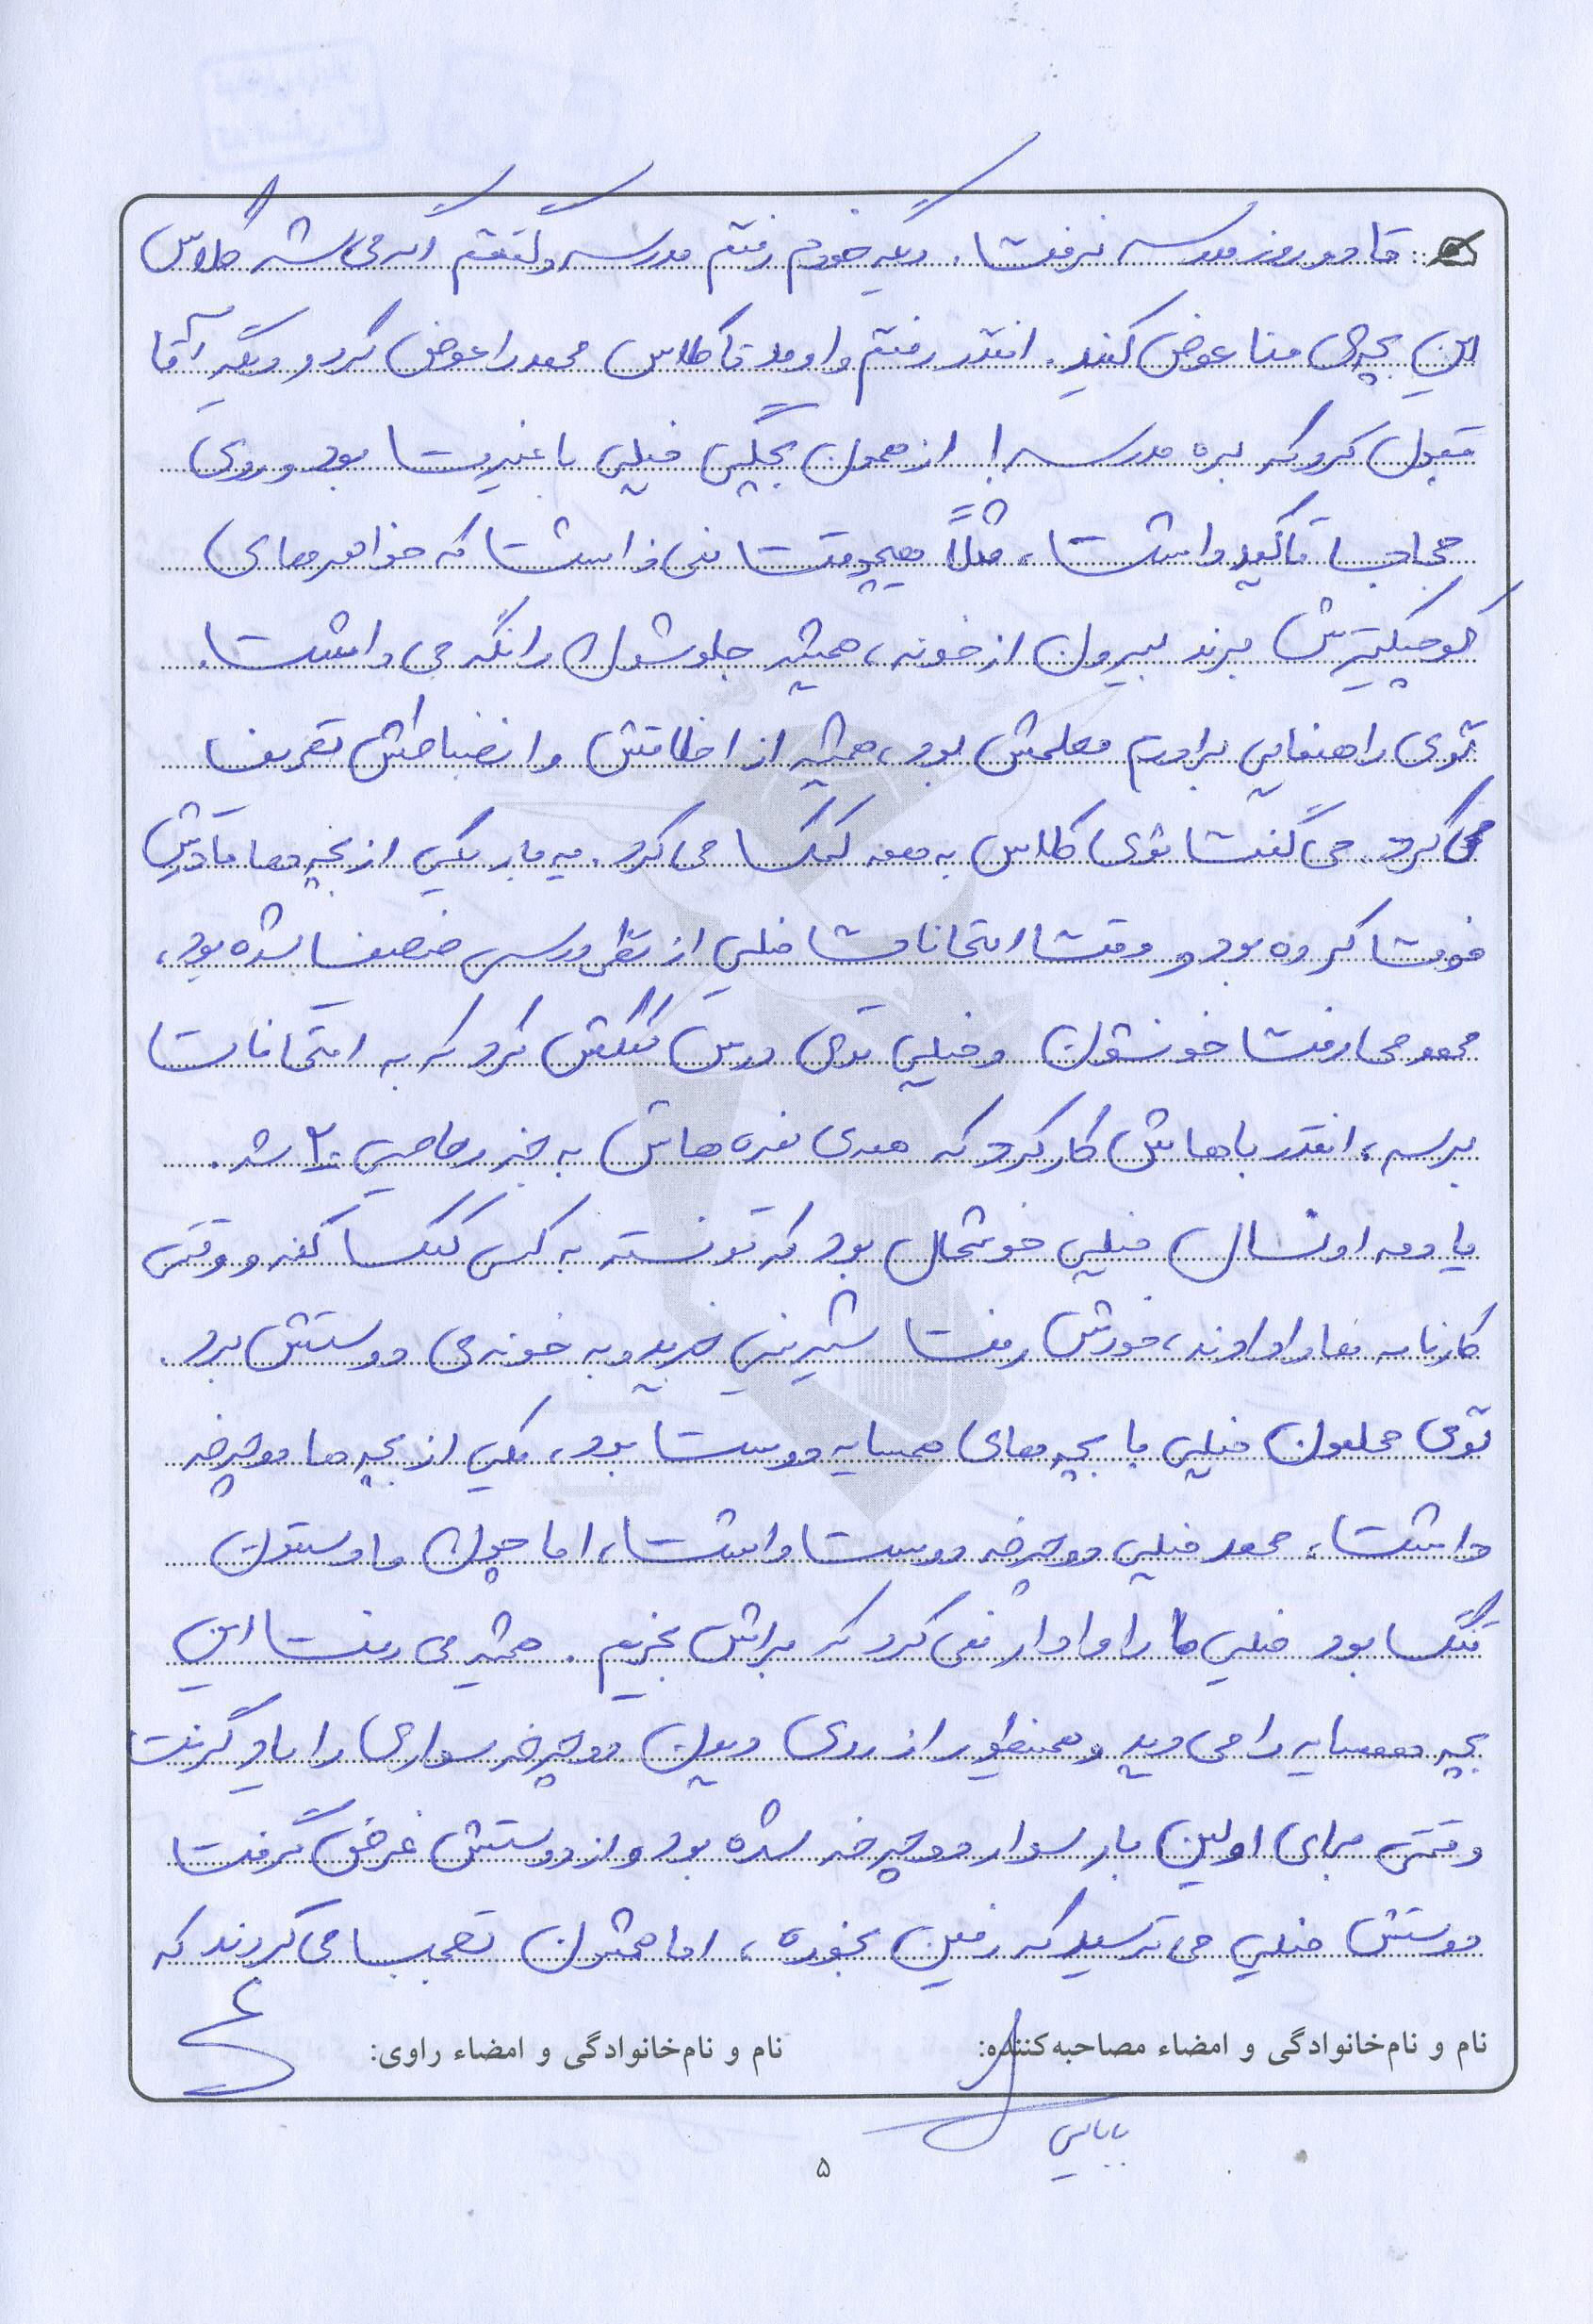 تا دو روز مدرسه نرفت. دیگه خودم رفتم مدرسه و گفتم اگه می‌شه کلاس
این بچه‌ی منا عوض کنید. انقدر رفتم و اومد تا کلاس محمد را عوض کرد و دیگه آقا
قبول کرد که بره مدرسه! از همون بچگی خیلی با غیرت بود و روی
حجاب تاکید داشت، مثلاً هیچوقت نمی‌ذاشت که خواهرهای
کوچیکترش برند بیرون از خونه، همیشه جلوشون را نگه می‌داشت.
توی راهنمایی برادرم معلمش بود، همیشه از اخلاقش و انضباطش تعریف
می‌کرد. می‌گفت توی کلاس به همه کمک می‌کرد. یه بار یکی از بچه‌ها مادرش
فوت کرده بود و وقت امتحانات خیلی از نظر درسی ضعیف شده بود،
محمد می‌رفت خونشون و خیلی توی درس کمکش کرد که به امتحانات
برسه، انقدر باهاش کار کرد که همه‌ی نمره‌هاش به جز ریاضی ۲۰ شد.
یادمه اونسال خیلی خوشحال بود که تونسته به کسی کمک کنه و وقتی
کارنامه‌ها را دادند، خودش رفت شیرینی خرید و به خونه‌ی دوستش برد.
توی محلمون خیلی با بچه‌های همسایه دوست بود، یکی از بچه‌ها دوچرخه
داشت، محمد خیلی دوچرخه دوست داشت، اما چون ما دستمون
تنگ بود خیلی ما را وادار نمی‌کرد که براش بخریم. همیشه می‌رفت این
بچه همسایه را می‌دید و همینطور از روی دیدن دوچرخه‌سواری را یاد گرفت
وقتی برای اولین بار سوار دوچرخه شده بود و از دوستش غرض گرفت
دوستش خیلی می‌ترسید که زمین بخوره، اما همشون تعجب می‌کردند که
نام و نام‌خانوادگی و امضاء مصاحبه‌کننده: نام و نام‌خانوادگی و امضاء راوی:
بابایی
۵